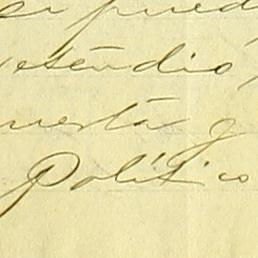 si pued
etendio,
uesta y
Politico